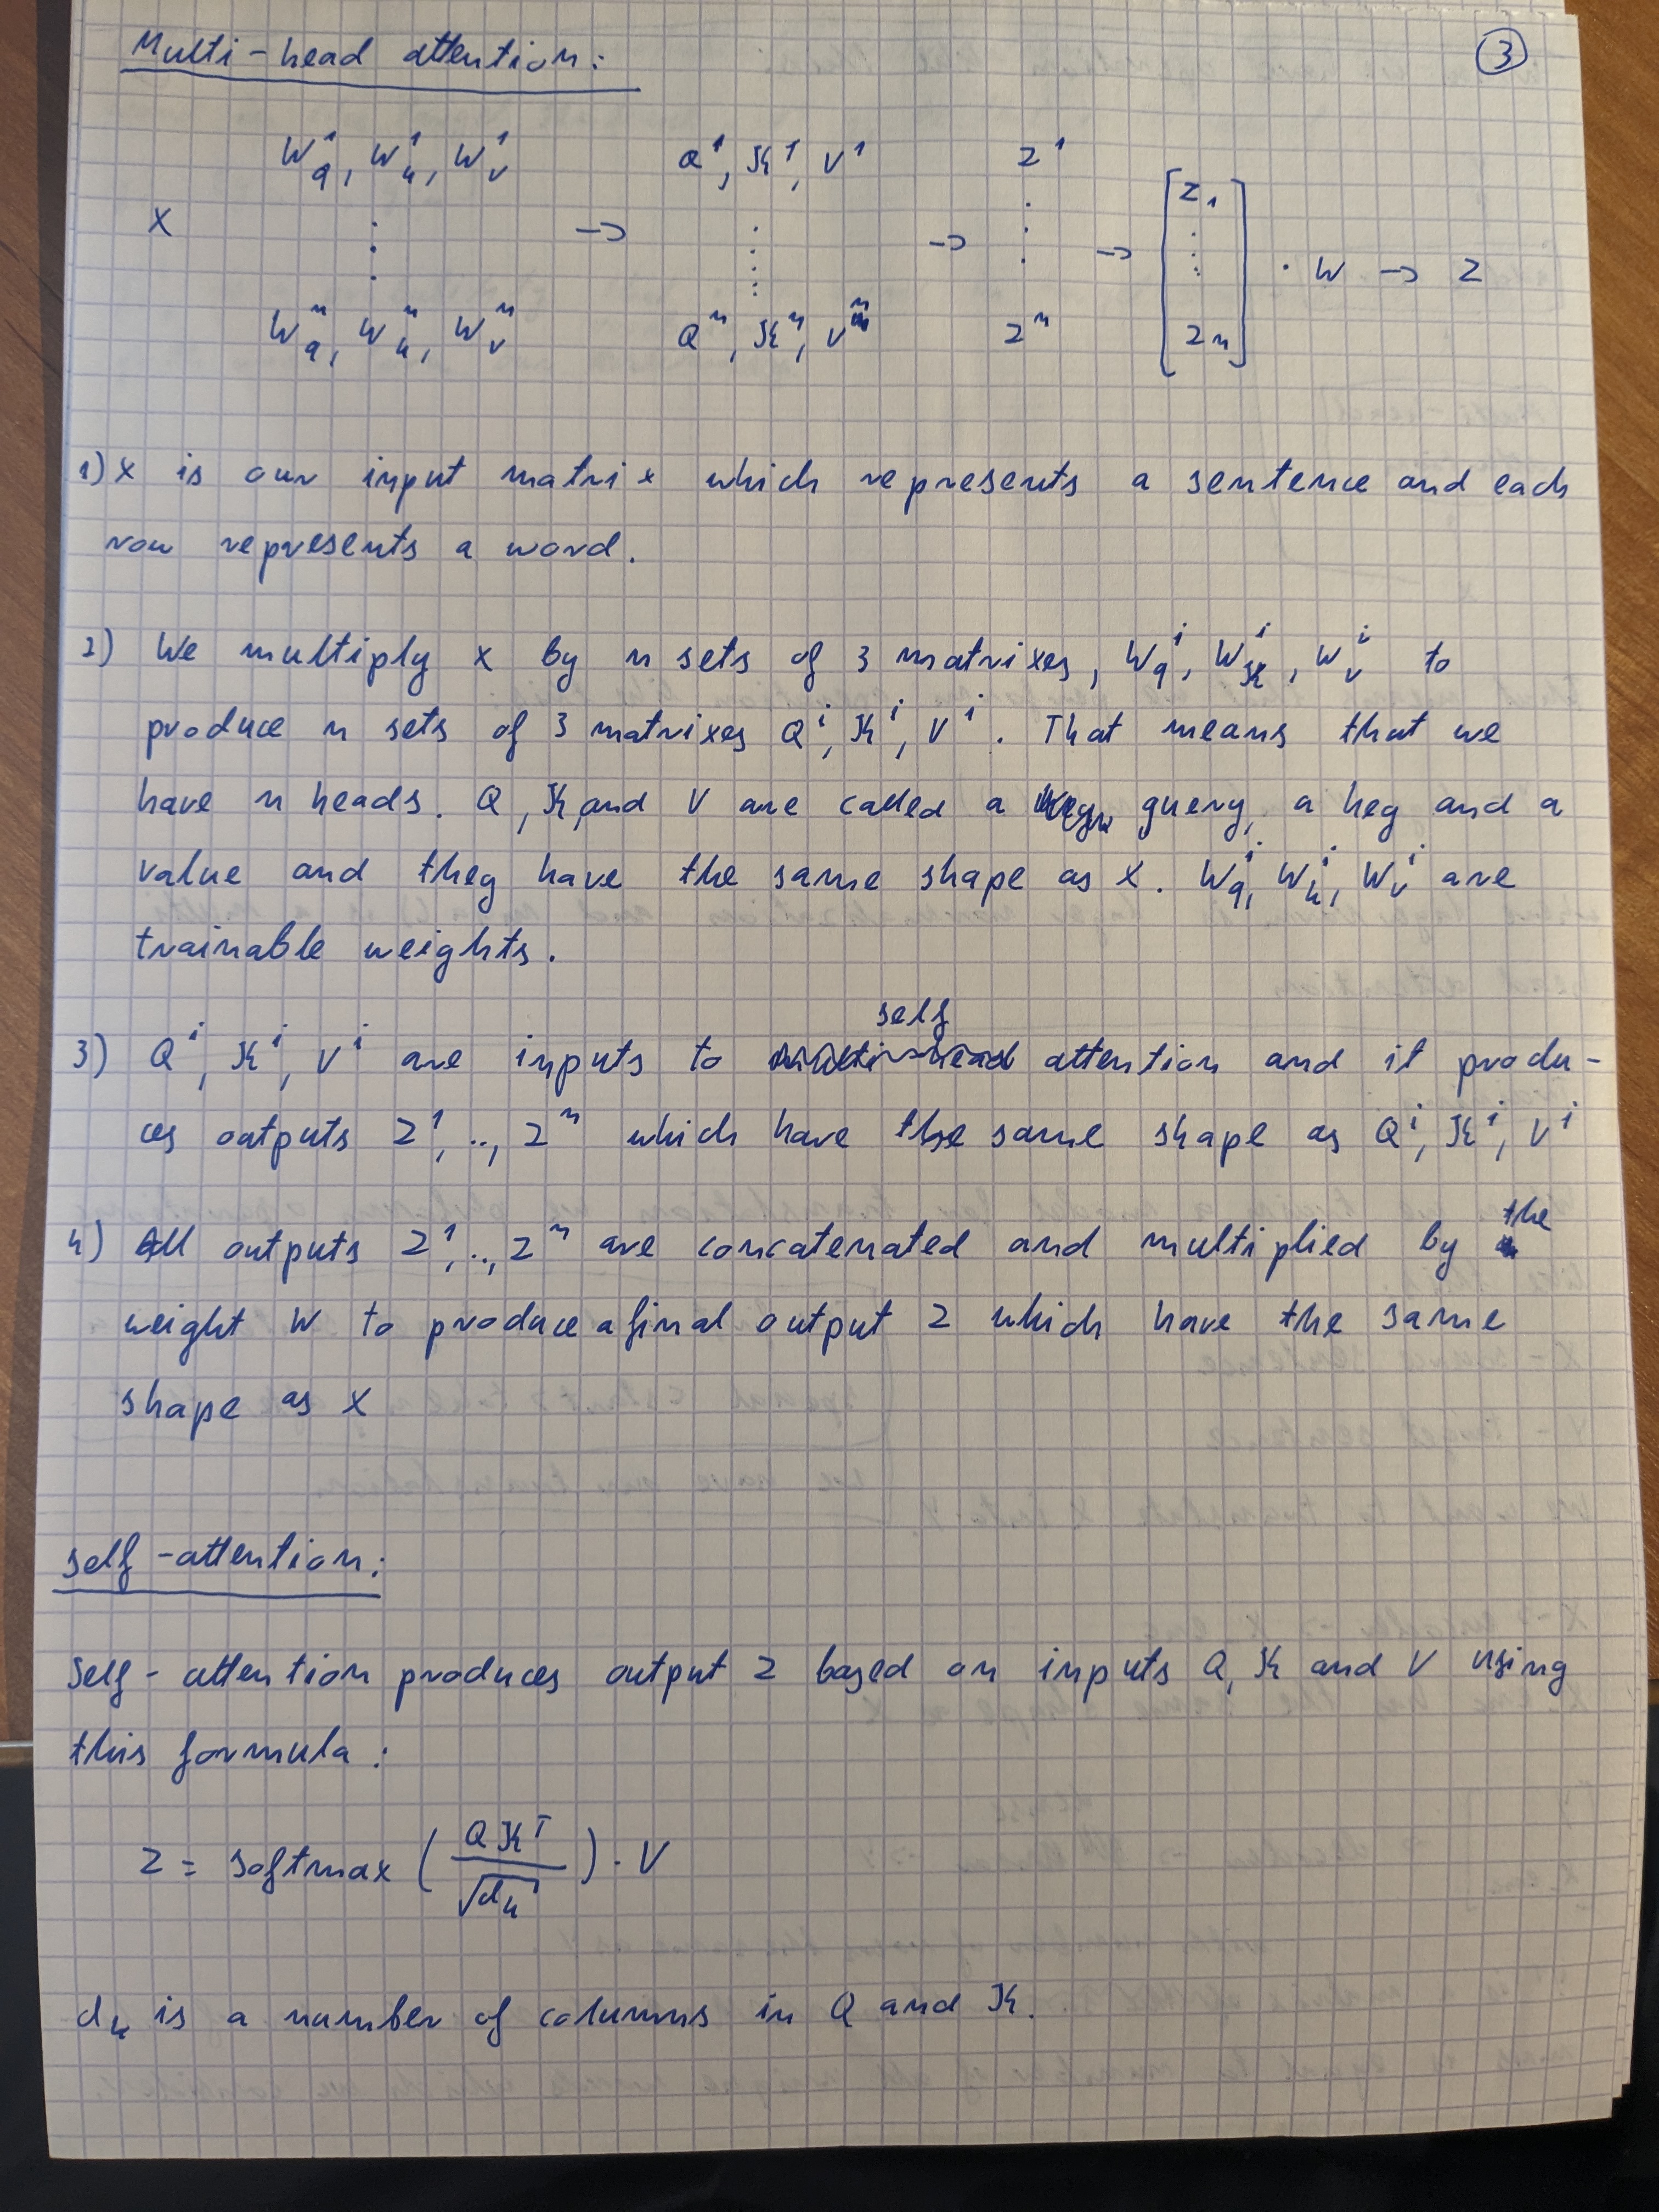 Multi-head attention:
③
W_q^1, W_k^1, W_v^1 Q^1, K^1, V^1 Z^1
X ⋮ → ⋮ → ⋮ → [Z_1 ⋮ Z_n] · W → Z
W_q^n, W_k^n, W_v^n Q^n, K^n, V^n Z^n
1) X is our input matrix which represents a sentence and each
row represents a word.
2) We multiply X by n sets of 3 matrixes, W_q^i, W_K^i, W_v^i to
produce n sets of 3 matrixes Q^i, K^i, V^i. That means that we
have n heads. Q, K, and V are called a query, a key and a
value and they have the same shape as X. W_q^i, W_k^i, W_v^i are
trainable weights.
3) Q^i, K^i, V^i are inputs to self attention and it produ-
ces outputs Z^1, .., Z^n which have the same shape as Q^i, K^i, V^i
4) All outputs Z^1, .., Z^n are concatenated and multiplied by the
weight W to produce a final output Z which have the same
shape as X
self-attention:
Self-attention produces output Z based on inputs Q, K and V using
this formula:
Z = softmax (QK^T / √d_k) · V
d_k is a number of columns in Q and K.